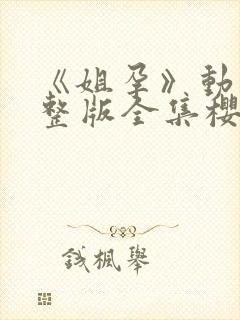 《姐孕》動
整版全集櫻
钱楓舉